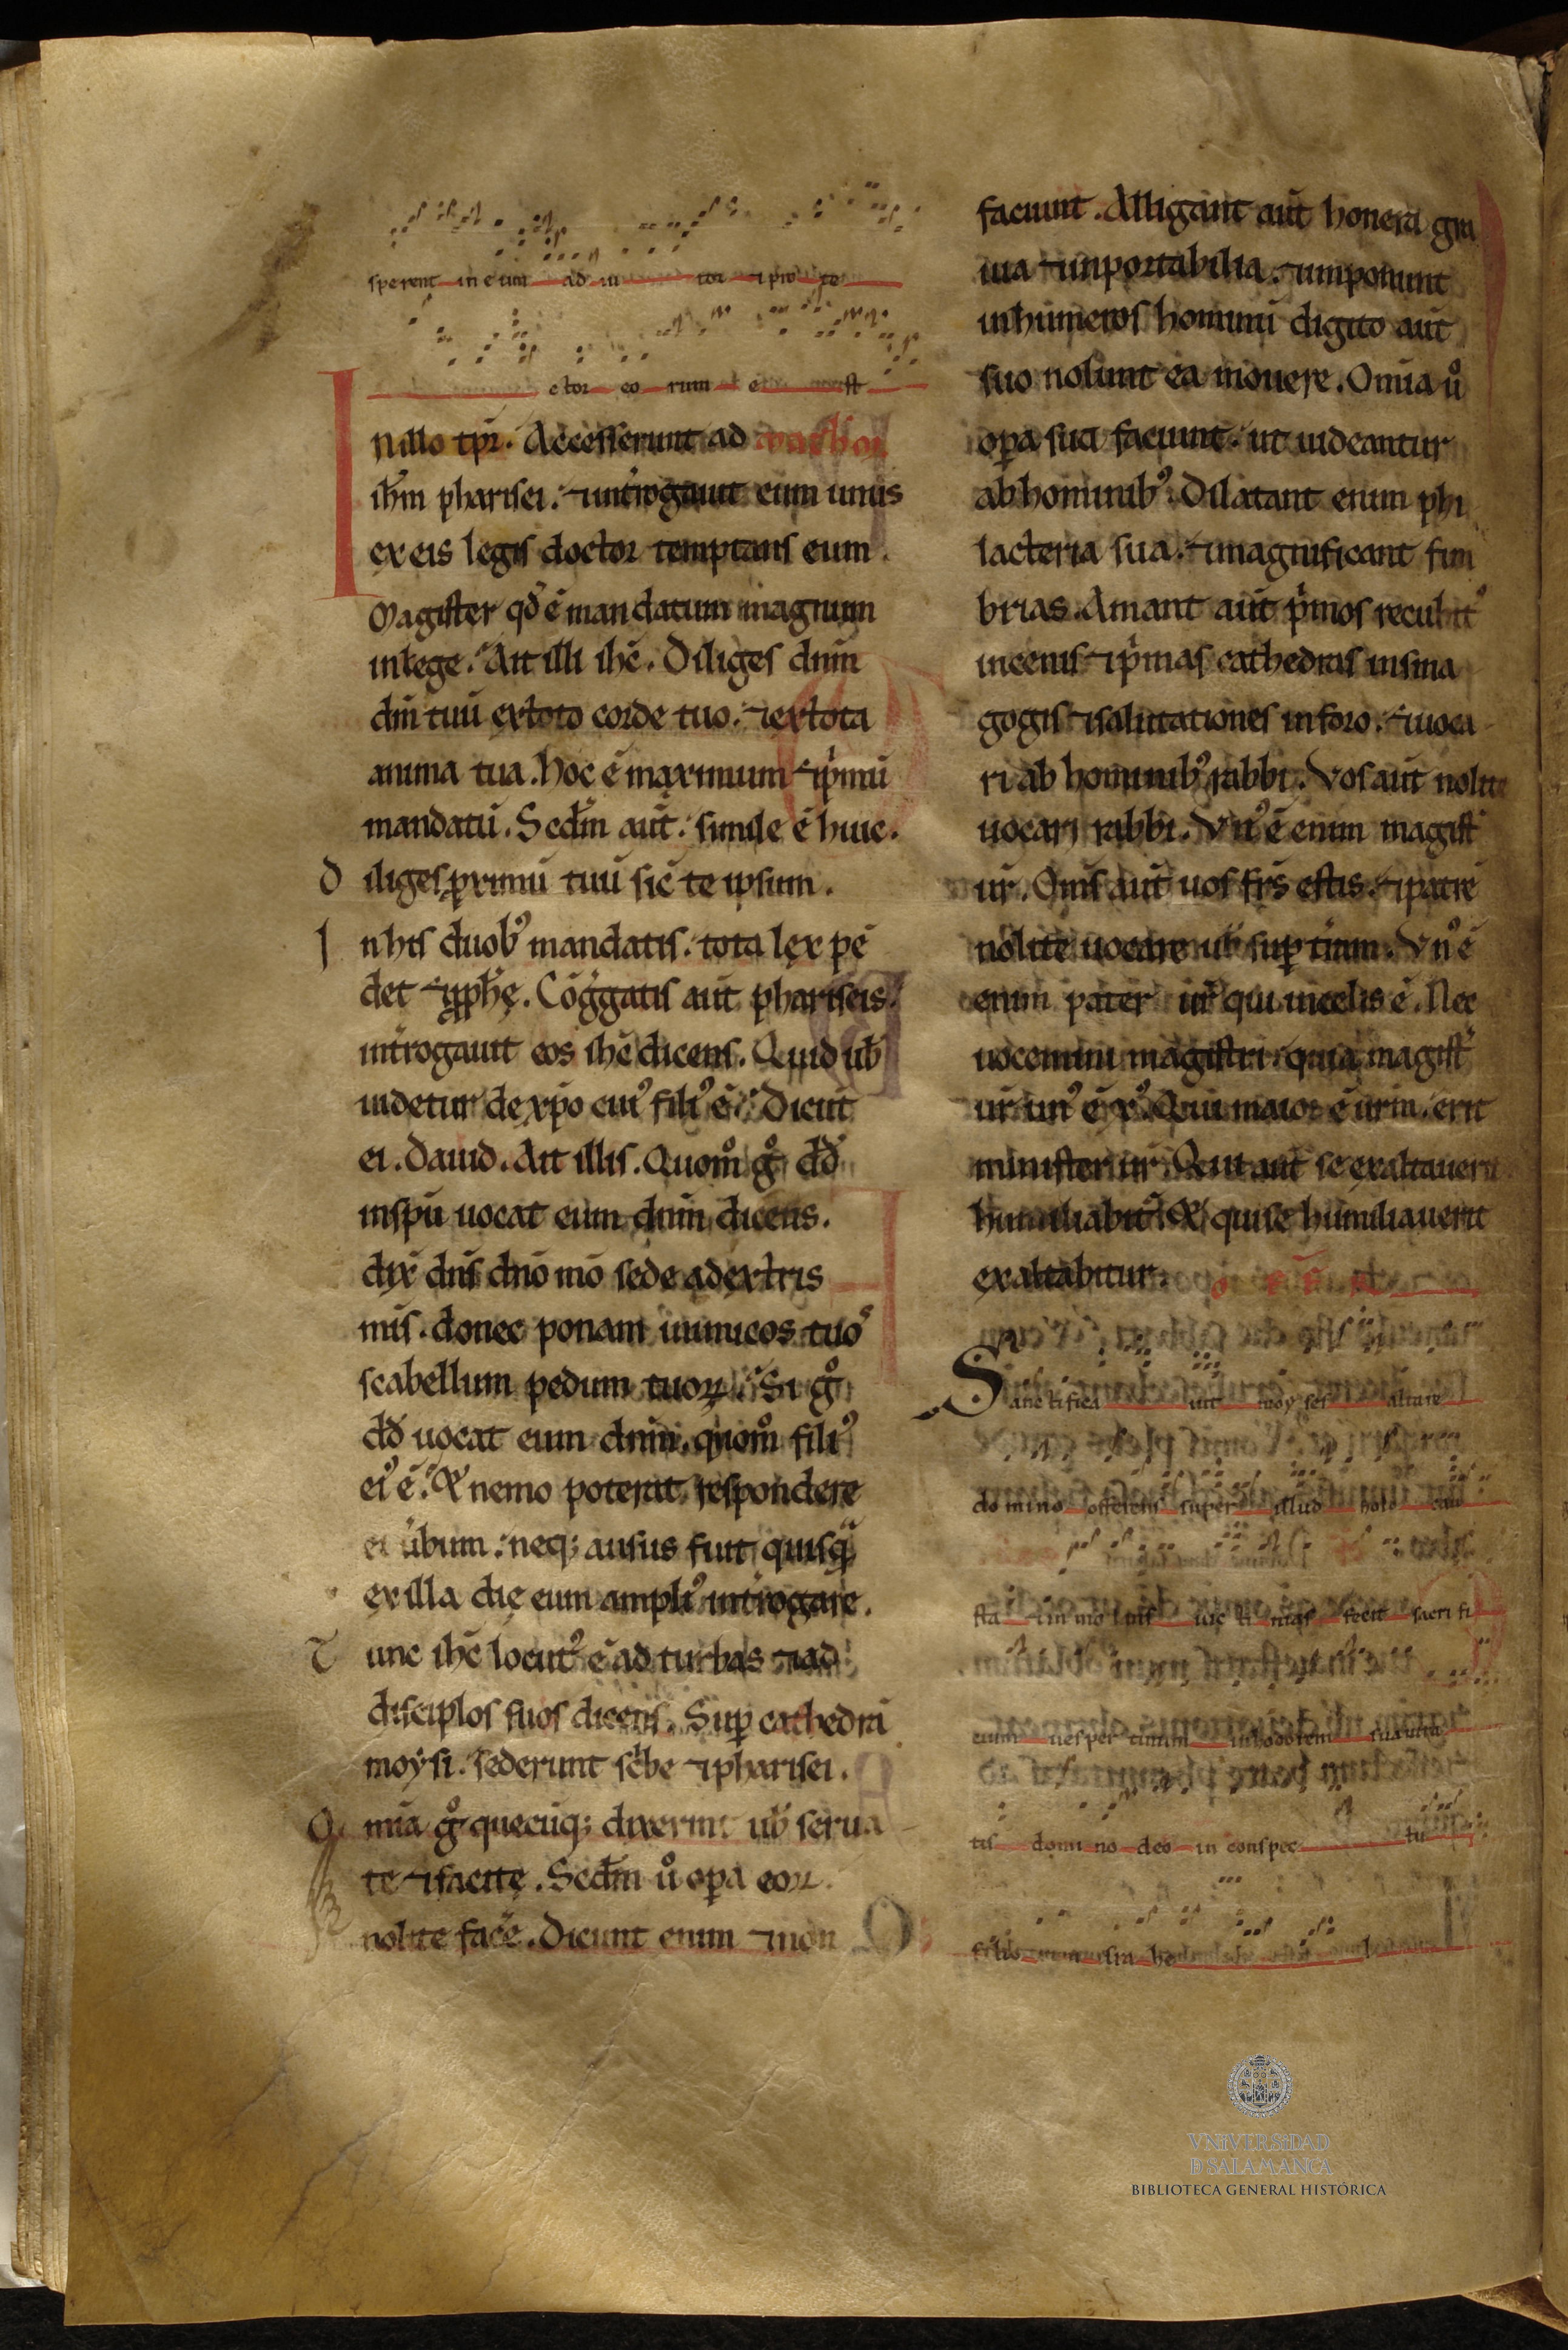 sperent in eum ad iu tor ⁊ pro te
ctor eo rum est
N illo tpr̄. Accesserunt ad
ih̄m pharisei. ⁊ intr̄ogauit eum unus
ex eis legis doctor temptans eum.
Magister qđ ē mandatum magnum
in lege. Ait illi ih̄c. Diliges dn̄m
dm̄ tuū ex toto corde tuo. ⁊ ex tota
anima tua. hoc ē maximum ⁊ p̄mū
mandatū. Scd̄m aūt. simile ē huic.
D iliges proximū tuū sic̄ te ipsum.
I n his duobꝰ mandatis. tota lex pē
det ⁊ pph̄ę. Cōḡgatis aūt phariseis.
intr̄ogauit eos ih̄c dicens. Quid uƀ
uidetur de xp̄o cuiꝰ filiꝰ ē. Dicūt
ei. Dauid. Ait illis. Quom̊ g̊ dđ
in sp̄u uocat eum dn̄m dicens.
dix̄ dn̄s dn̄o mō sede a dextris
mīs. donec ponam inimicos tuos
scabellum pedum tuoꝝ. Si g̊
dđ uocat eum dn̄m. quom̊ filiꝰ
eiꝰ ē. & nemo poterat respondere
ei ūbum. neq; ausus fuit quisq̄
ex illa die eum ampliꝰ intr̄ogare.
T unc ih̄c locutꝰ ē ad turbas ⁊ ad
discip̄los suos dicens. Suꝑ cathedrā
moysi. sederunt sc̄be ⁊ pharisei.
O mīa g̊ quecūq; dixerint uƀ serua
te ⁊ facite. Scd̄m ů oꝑa eoꝝ
nolite fac̄e. Dicunt enim ⁊ non
faciunt. Alligant aūt honera gra
uia ⁊ inportabilia. ⁊ imponunt
in humeros hominū digito aūt
suo nolunt ea mouere. Omīa ů
oꝑa sua faciunt. ut uideantur
ab hominibꝰ. Dilatant enim phi
lacteria sua. ⁊ magnificant fim
brias. Amant aūt p̄mos recubitꝰ
in cenis ⁊ p̄mas cathedras in sina
gogis ⁊ salutationes in foro. ⁊ uoca
ri ab hominibꝰ rabbi. Vos aūt nolite
uocari rabbi. Vnꝰ ē enim magist̄
ur̄. Om̄s aūt uos fr̄s estis. ⁊ patrē
nolite uocare uƀ suꝑ t̄ram. Vnꝰ ē
enim pater ur̄ qui in celis ē. Nec
uocemini magistri. quia magist̄
ur̄ unꝰ ē x̄. Qui maior ē ur̄m. erit
minister ur̄. Qui aūt se exaltauerit
humiliabit̄. & qui se humiliauerit
exaltabitur.
Sanctifica uit moy ses altare
do mino offerens super illud holo cau
sta ⁊ im mo lans uic ti mas fecit sacri fi
cium uesper tinum in hodorem suauita
tis domi no deo in conspec tu
filio rum isra he l
VNiVERSiDAD
D SALAMANCA
BIBLIOTECA GENERAL HISTÓRICA